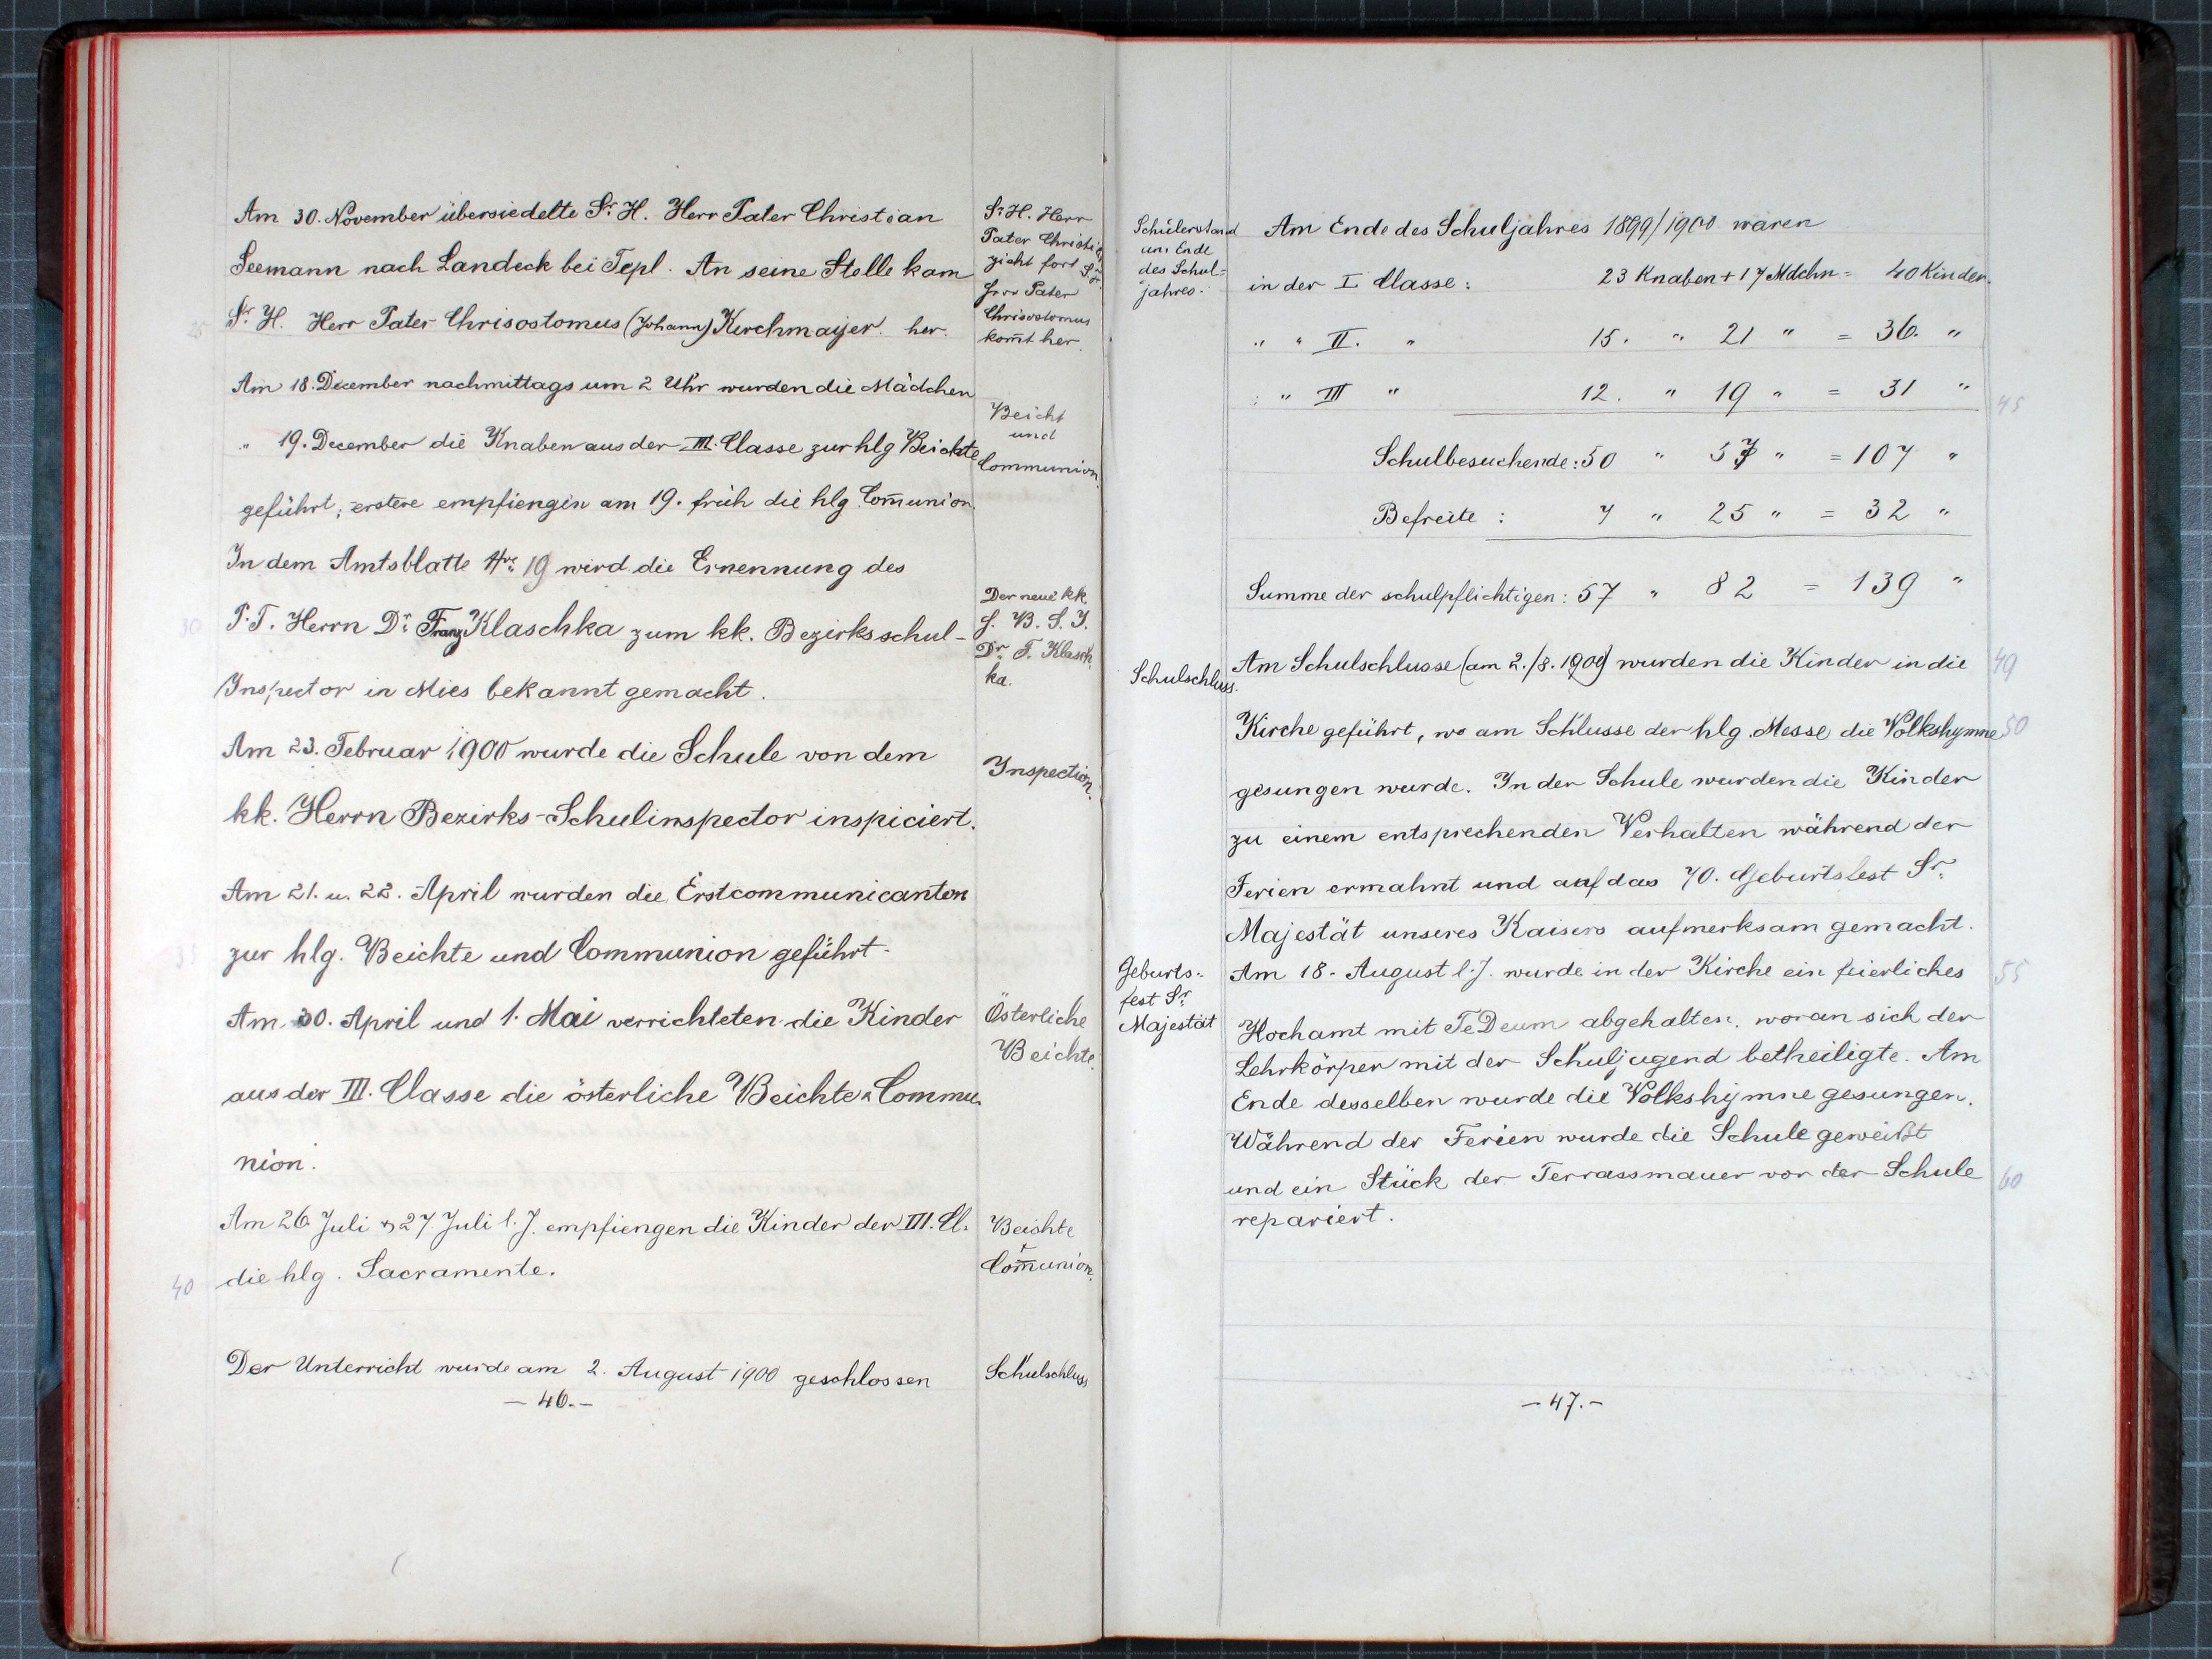 Am 30. November übersiedelte Sr. H. Herr Pater Christian
Seemann nach Landeck bei Tepl. An seine Stelle kam
Sr. H. Herr Pater Chrisostomus (Johann) Kerchmaijer her.
Am 18. December nachmittags um 2 Uhr wurden die Mädchen
" 19. December die Knaben aus der III. Classe zur hlg Beichte
geführt; erstere empfiengen am 19. früh die hlg Com̄union.
In dem Amtsblatte Nro. 19 wird die Ernennung des
P. T. Herrn Dr. Franz Klaschka zum kk. Bezirksschul-
Inspector in Mies bekannt gemacht.
Am 23. Februar 1900 wurde die Schule von dem
kk. Herrn Bezirks-Schulinspector inspiciert.
Am 21. u. 22. April wurden die Erstcommunicanten
zur hlg. Beichte und Communion geführt.
Am 30. April und 1. Mai verrichteten die Kinder
aus der III. Classe die österliche Beichte & Commu-
nion.
Am 26 Juli & 27. Juli l. J. empfiengen die Kinder der III. Cl.
die hlg. Sacramente.
Der Unterricht wurde am 2. August 1900 geschlossen
- 46. -
Sr. H. Herr
Pater Christian
zieht fort Sr. H.
Herr Pater
Chrisostomus
kom̄t her.
Beicht
und
Communion.
Der neue kk.
H. B. S. I.
Dr. F. Klasch
ka.
Inspection.
Österliche
Beichte.
Beichte
+
Com̄union.
Schulschluss
25
30
35
40
Schülerstand
am Ende
des Schul=
jahres.
Am Ende des Schuljahres 1899/1900 waren
in der I Classe: 23 Knaben + 17 Mdchn = 40 Kinder.
" " II. " 15. " 21 " = 36. "
" " III " 12. " 19 " = 31 "
Schulbesuchende: 50 " 57 " = 107 "
Befreite: 7 " 25 " = 32 "
Summe der schulpflichtigen: 57 " 82 = 139 "
Schulschluss.
Am Schulschlusse (am 2./8. 1900) wurden die Kinder in die
Kirche geführt, wo am Schlusse der hlg. Messe die Volkshymne
gesungen wurde. In der Schule wurden die Kinder
zu einem entsprechenden Verhalten während der
Ferien ermahnt und auf das 70. Geburtsfest Sr.
Majestät unseres Kaisers aufmerksam gemacht.
Geburts=
fest Sr.
Majestät
Am 18. August l. J. wurde in der Kirche ein feierliches
Hochamt mit Te Deum abgehalten, woran sich der
Lehrkörper mit der Schuljugend betheiligte. Am
Ende desselben wurde die Volkshymne gesungen.
Während der Ferien wurde die Schule geweißt
und ein Stück der Terrassmauer vor der Schule
repariert.
- 47. -
45
49
50
55
60